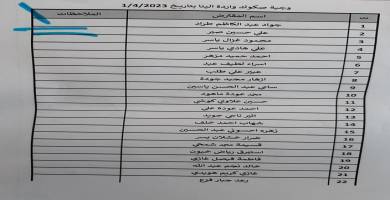 وجبة صكوك واردة الينا بتاريخ 1/4/2023
ت اسم المقترض الملاحظات
1 جواد عبد الكاظم طراد
2 علي حسين صبر
3 محمود غزال ياسر
4 علي هادي ياسر
5 احمد حميد مزهر
6 اسراء لطيف عبد
7 عبير علي طلب
8 ازهار مجيد جودة
9 ساجي عبد الحسن ياسين
10 محمد عودة ماهود
11 حسين علاوي كوشي
12 احمد عودة علي
13 اثير ناجي جويد
14 شهاب احمد خلف
15 زهره احسوني عبد الحسين
16 ضرار خشلان يسر
17 قسيمة محمد شمخي
18 استبرق رياض خيون
19 فاطمة فيصل غازي
20 خالد نجم عبد الله
21 غازي كريم هويدي
22 رعد جبار فرج